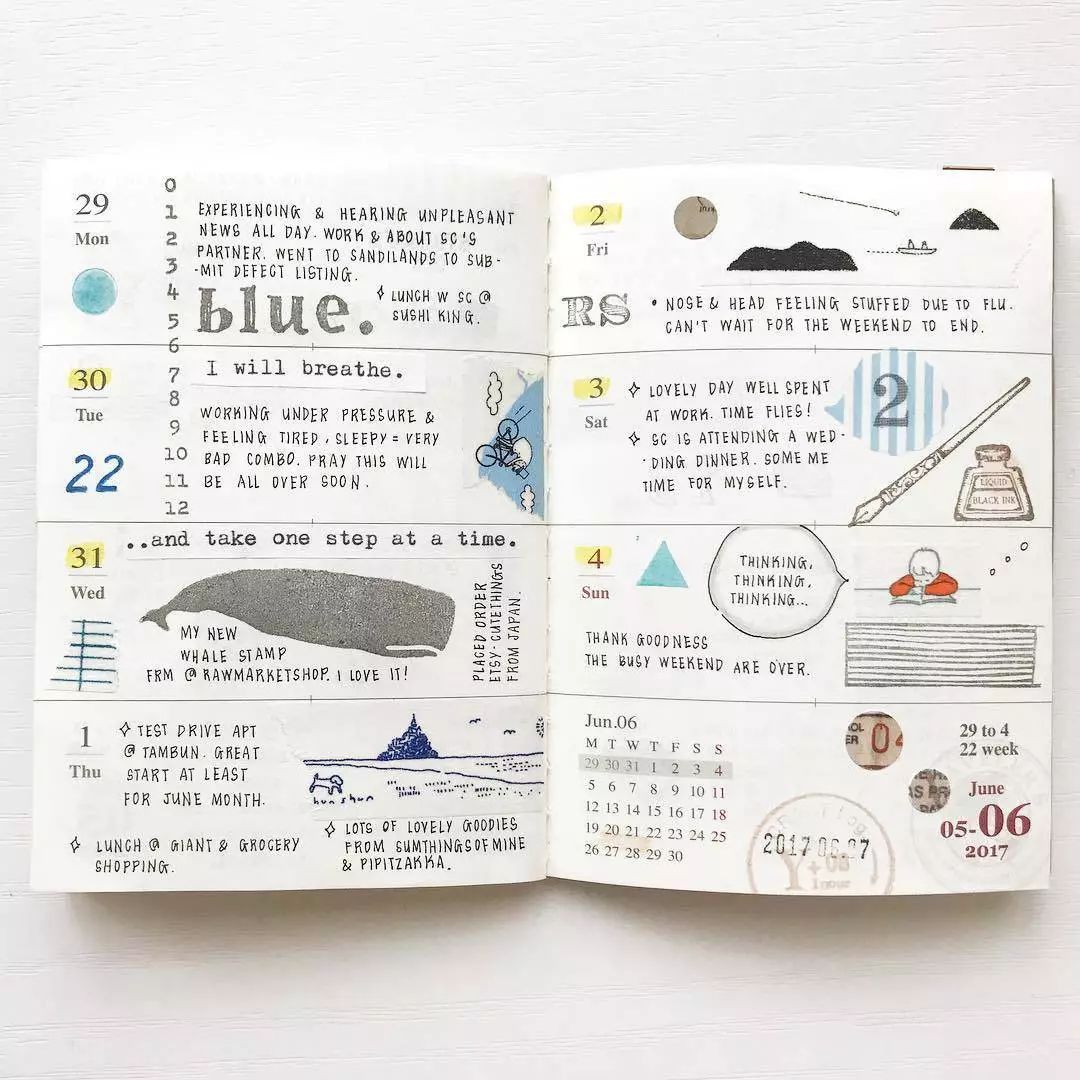 29
Mon
0
1
2
3
4
5
6
7
8
9
10
11
12
EXPERIENCING & HEARING UNPLEASANT
NEWS ALL DAY. WORK & ABOUT SC'S
PARTNER. WENT TO SANDILANDS TO SUB-
-MIT DEFECT LISTING.
blue.
LUNCH W SC @
SUSHI KING.
30
Tue
22
I will breathe.
WORKING UNDER PRESSURE &
FEELING TIRED, SLEEPY = VERY
BAD COMBO. PRAY THIS WILL
BE ALL OVER SOON.
31
Wed
..and take one step at a time.
MY NEW
WHALE STAMP
FRM @RAWMARKETSHOP. I LOVE IT!
PLACED ORDER
ETSY-CUTETHINGS
FROM JAPAN.
1
Thu
TEST DRIVE APT
@ TAMBUN. GREAT
START AT LEAST
FOR JUNE MONTH.
LUNCH @ GIANT & GROCERY
SHOPPING.
LOTS OF LOVELY GOODIES
FROM SUMTHINGSOFMINE
& PIPITZAKKA.
2
Fri
RS
• NOSE & HEAD FEELING STUFFED DUE TO FLU.
CAN'T WAIT FOR THE WEEKEND TO END.
3
Sat
LOVELY DAY WELL SPENT
AT WORK. TIME FLIES!
SC IS ATTENDING A WED-
-DING DINNER. SOME ME
TIME FOR MYSELF.
2
LIQUID
BLACK INK
4
Sun
THINKING,
THINKING,
THINKING...
THANK GOODNESS
THE BUSY WEEKEND ARE OVER.
Jun.06
M T W T F S S
29 30 31 1 2 3 4
5 6 7 8 9 10 11
12 13 14 15 16 17 18
19 20 21 22 23 24 25
26 27 28 29 30
04
29 to 4
22 week
June
05-06
2017